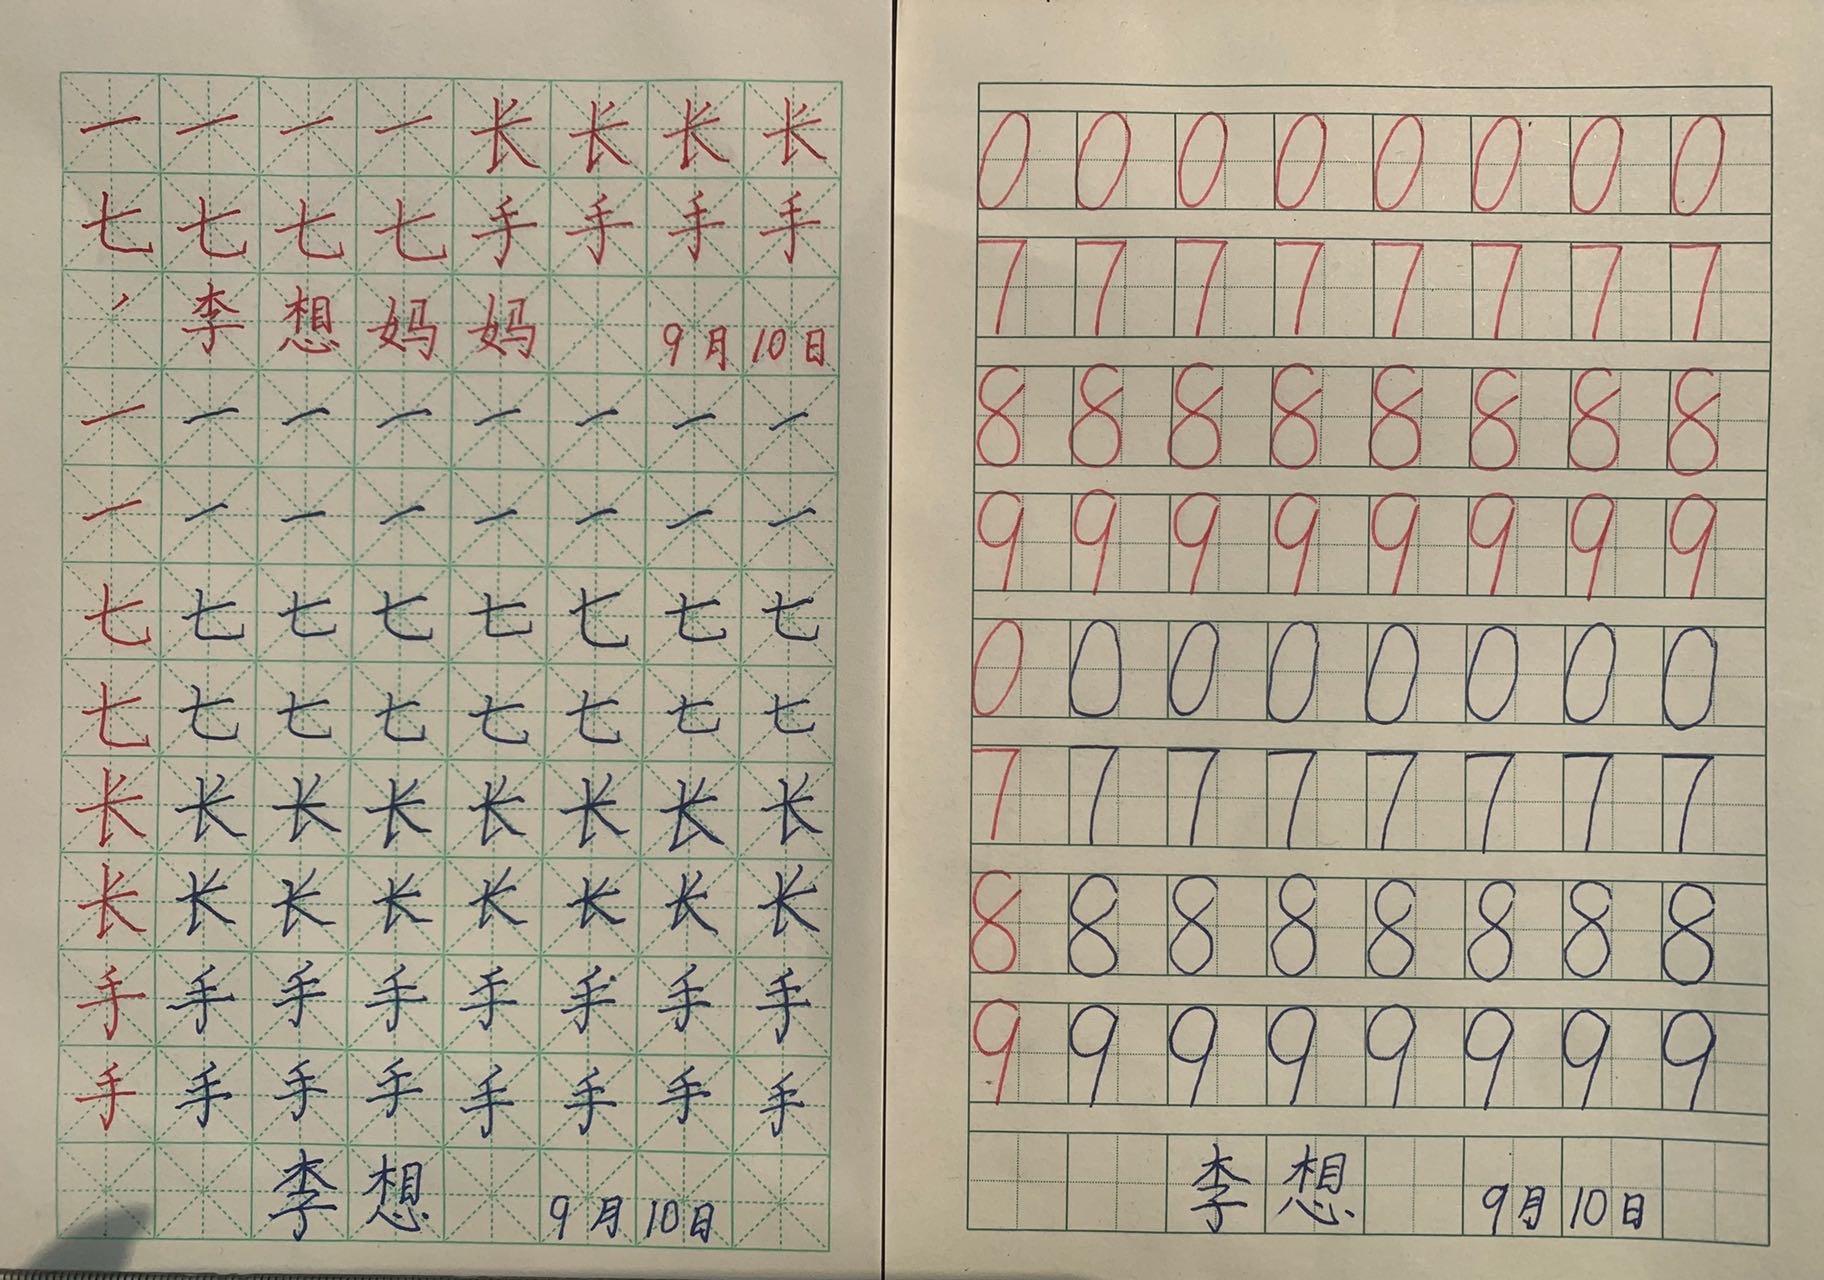 一 一 一 一 长 长 长 长
七 七 七 七 手 手 手 手
李 想 妈 妈 9月10日
一 一 一 一 一 一 一 一
一 一 一 一 一 一 一 一
七 七 七 七 七 七 七 七
七 七 七 七 七 七 七 七
长 长 长 长 长 长 长 长
长 长 长 长 长 长 长 长
手 手 手 手 手 手 手 手
手 手 手 手 手 手 手 手
李 想 9月10日
0 0 0 0 0 0 0 0
7 7 7 7 7 7 7 7
8 8 8 8 8 8 8 8
9 9 9 9 9 9 9 9
0 0 0 0 0 0 0 0
7 7 7 7 7 7 7 7
8 8 8 8 8 8 8 8
9 9 9 9 9 9 9 9
李 想 9月10日